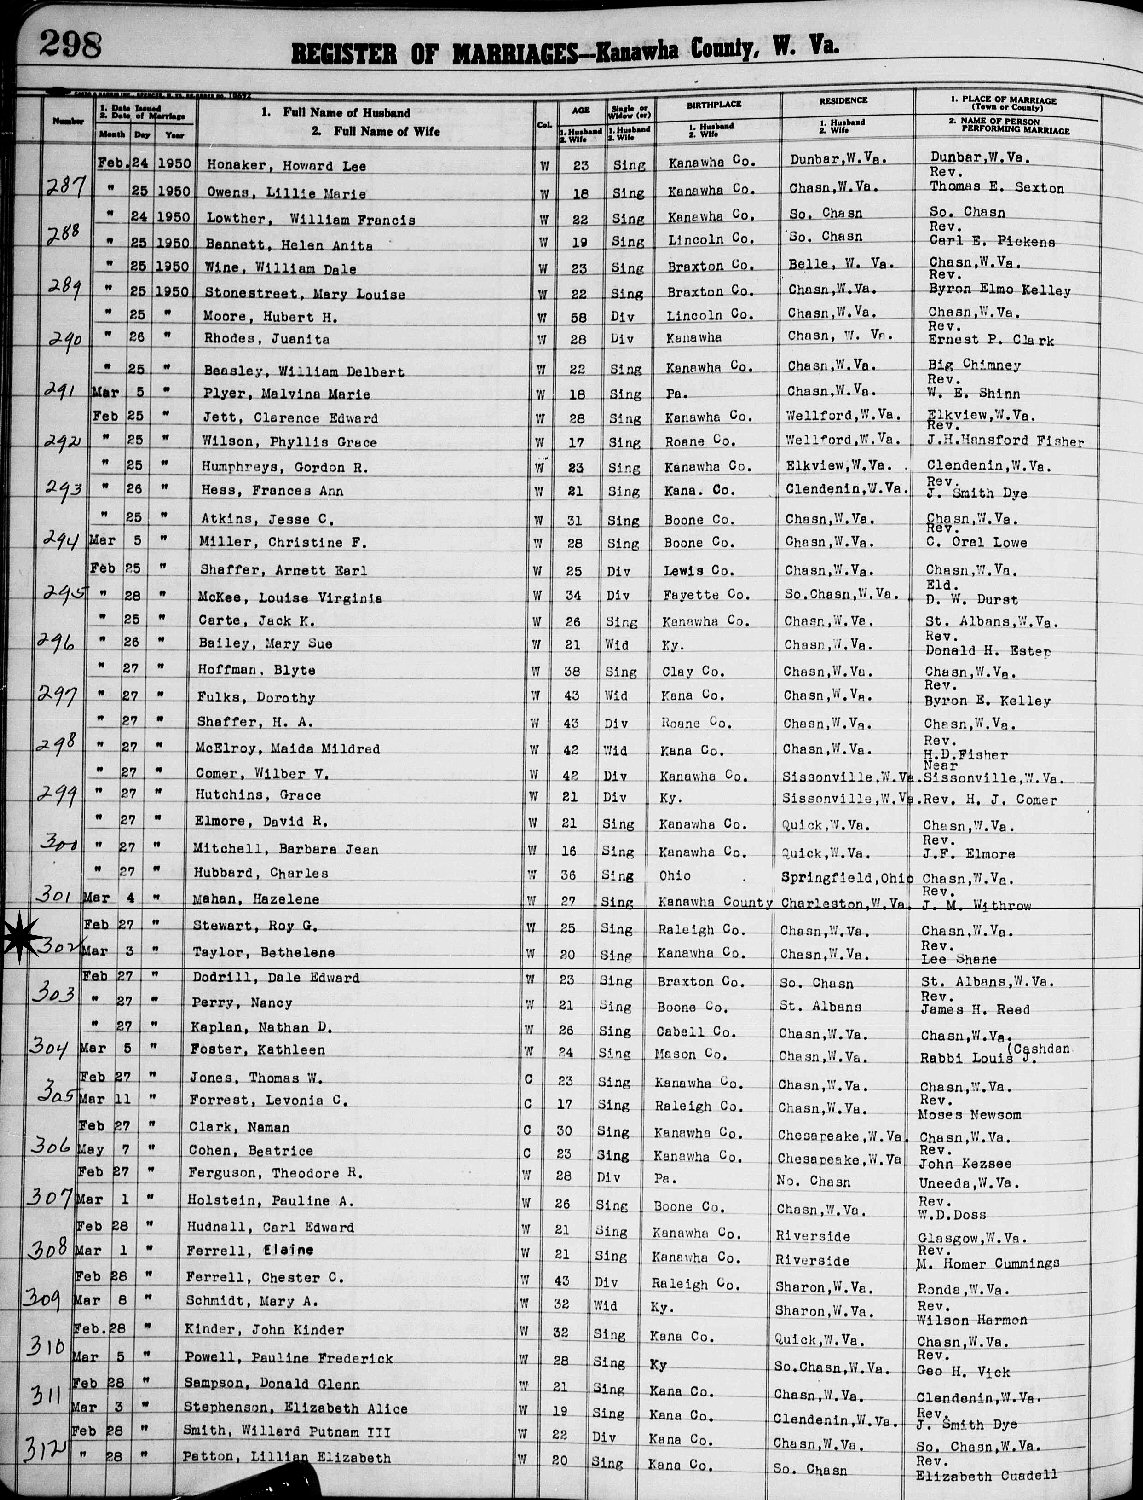 298
REGISTER OF MARRIAGES—Kanawha County, W. Va.
Number
1. Date Issued
2. Date of Marriage
Month Day Year
1. Full Name of Husband
2. Full Name of Wife
Col.
AGE
1. Husband
2. Wife
Single or
Widow (er)
1. Husband
2. Wife
BIRTHPLACE
1. Husband
2. Wife
RESIDENCE
1. Husband
2. Wife
1. PLACE OF MARRIAGE
(Town or County)
2. NAME OF PERSON
PERFORMING MARRIAGE
Feb. 24 1950 Honaker, Howard Lee W 23 Sing Kanawha Co. Dunbar,W.Va. Dunbar,W.Va.
287 " 25 1950 Owens, Lillie Marie W 18 Sing Kanawha Co. Chasn,W.Va. Rev. Thomas E. Sexton
" 24 1950 Lowther, William Francis W 22 Sing Kanawha Co. So. Chasn So. Chasn
288 " 25 1950 Bennett, Helen Anita W 19 Sing Lincoln Co. So. Chasn Rev. Carl E. Pickens
" 25 1950 Wine, William Dale W 23 Sing Braxton Co. Belle, W. Va. Chasn,W.Va.
289 " 25 1950 Stonestreet, Mary Louise W 22 Sing Braxton Co. Chasn,W.Va. Rev. Byron Elmo Kelley
" 25 " Moore, Hubert H. W 58 Div Lincoln Co. Chasn,W.Va. Chasn,W.Va.
290 " 26 " Rhodes, Juanita W 28 Div Kanawha Chasn, W. Va. Rev. Ernest P. Clark
" 25 " Beasley, William Delbert W 22 Sing Kanawha Co. Chasn,W.Va. Big Chimney
291 Mar 5 " Plyer, Malvina Marie W 18 Sing Pa. Chasn,W.Va. Rev. W. E. Shinn
Feb 25 " Jett, Clarence Edward W 28 Sing Kanawha Co. Wellford,W.Va. Elkview,W.Va.
292 " 25 " Wilson, Phyllis Grace W 17 Sing Roane Co. Wellford,W.Va. Rev. J.H.Hansford Fisher
" 25 " Humphreys, Gordon R. W 23 Sing Kanawha Co. Elkview,W.Va. Clendenin,W.Va.
293 " 26 " Hess, Frances Ann W 21 Sing Kana. Co. Clendenin,W.Va. Rev. J. Smith Dye
" 25 " Atkins, Jesse C. W 31 Sing Boone Co. Chasn,W.Va. Chasn,W.Va.
294 Mar 5 " Miller, Christine F. W 28 Sing Boone Co. Chasn,W.Va. Rev. C. Oral Lowe
Feb 25 " Shaffer, Arnett Earl W 25 Div Lewis Co. Chasn,W.Va. Chasn,W.Va.
295 " 28 " McKee, Louise Virginia W 34 Div Fayette Co. So.Chasn,W.Va. Eld. D. W. Durst
" 25 " Carte, Jack K. W 26 Sing Kanawha Co. Chasn,W.Va. St. Albans,W.Va.
296 " 26 " Bailey, Mary Sue W 21 Wid Ky. Chasn,W.Va. Rev. Donald H. Estep
" 27 " Hoffman, Blyte W 38 Sing Clay Co. Chasn,W.Va. Chasn,W.Va.
297 " 27 " Fulks, Dorothy W 43 Wid Kana Co. Chasn,W.Va. Rev. Byron E. Kelley
" 27 " Shaffer, H. A. W 43 Div Roane Co. Chasn,W.Va. Chasn,W.Va.
298 " 27 " McElroy, Maida Mildred W 42 Wid Kana Co. Chasn,W.Va. Rev. H.D.Fisher
" 27 " Comer, Wilber V. W 42 Div Kanawha Co. Sissonville,W.Va. Near Sissonville,W.Va.
299 " 27 " Hutchins, Grace W 21 Div Ky. Sissonville,W.Va. Rev. H. J. Comer
" 27 " Elmore, David R. W 21 Sing Kanawha Co. Quick,W.Va. Chasn,W.Va.
300 " 27 " Mitchell, Barbara Jean W 16 Sing Kanawha Co. Quick,W.Va. Rev. J.F. Elmore
" 27 " Hubbard, Charles W 36 Sing Ohio Springfield,Ohio Chasn,W.Va.
301 Mar 4 " Mahan, Hazelene W 27 Sing Kanawha County Charleston,W.Va. Rev. J. M. Withrow
Feb 27 " Stewart, Roy G. W 25 Sing Raleigh Co. Chasn,W.Va. Chasn,W.Va.
302 Mar 3 " Taylor, Bethelene W 20 Sing Kanawha Co. Chasn,W.Va. Rev. Lee Shane
Feb 27 " Dodrill, Dale Edward W 23 Sing Braxton Co. So. Chasn St. Albans,W.Va.
303 " 27 " Perry, Nancy W 21 Sing Boone Co. St. Albans Rev. James H. Reed
" 27 " Kaplan, Nathan D. W 26 Sing Cabell Co. Chasn,W.Va. Chasn,W.Va.
304 Mar 5 " Foster, Kathleen W 24 Sing Mason Co. Chasn,W.Va. Rabbi Louis J. (Cashdan
Feb 27 " Jones, Thomas W. C 23 Sing Kanawha Co. Chasn,W.Va. Chasn,W.Va.
305 Mar 11 " Forrest, Levonia C. C 17 Sing Raleigh Co. Chasn,W.Va. Rev. Moses Newsom
Feb 27 " Clark, Naman C 30 Sing Kanawha Co. Chesapeake,W.Va. Chasn,W.Va.
306 May 7 " Cohen, Beatrice C 23 Sing Kanawha Co. Chesapeake,W.Va Rev. John Kezsee
Feb 27 " Ferguson, Theodore R. W 28 Div Pa. No. Chasn Uneeda,W.Va.
307 Mar 1 " Holstein, Pauline A. W 26 Sing Boone Co. Chasn,W.Va. Rev. W.D.Doss
Feb 28 " Hudnall, Carl Edward W 21 Sing Kanawha Co. Riverside Glasgow,W.Va.
308 Mar 1 " Ferrell, Elaine W 21 Sing Kanawha Co. Riverside Rev. M. Homer Cummings
Feb 28 " Ferrell, Chester C. W 43 Div Raleigh Co. Sharon,W.Va. Ronda,W.Va.
309 Mar 8 " Schmidt, Mary A. W 32 Wid Ky. Sharon,W.Va. Rev. Wilson Harmon
Feb. 28 " Kinder, John Kinder W 32 Sing Kana Co. Quick,W.Va. Chasn,W.Va.
310 Mar 5 " Powell, Pauline Frederick W 28 Sing Ky So.Chasn,W.Va. Rev. Geo H. Vick
Feb 28 " Sampson, Donald Glenn W 21 Sing Kana Co. Chasn,W.Va. Clendenin,W.Va.
311 Mar 3 " Stephenson, Elizabeth Alice W 19 Sing Kana Co. Clendenin,W.Va. Rev. J. Smith Dye
Feb 28 " Smith, Willard Putnam III W 22 Div Kana Co. Chasn,W.Va. So. Chasn,W.Va.
312 " 28 " Patton, Lillian Elizabeth W 20 Sing Kana Co. So. Chasn Rev. Elizabeth Cuadell